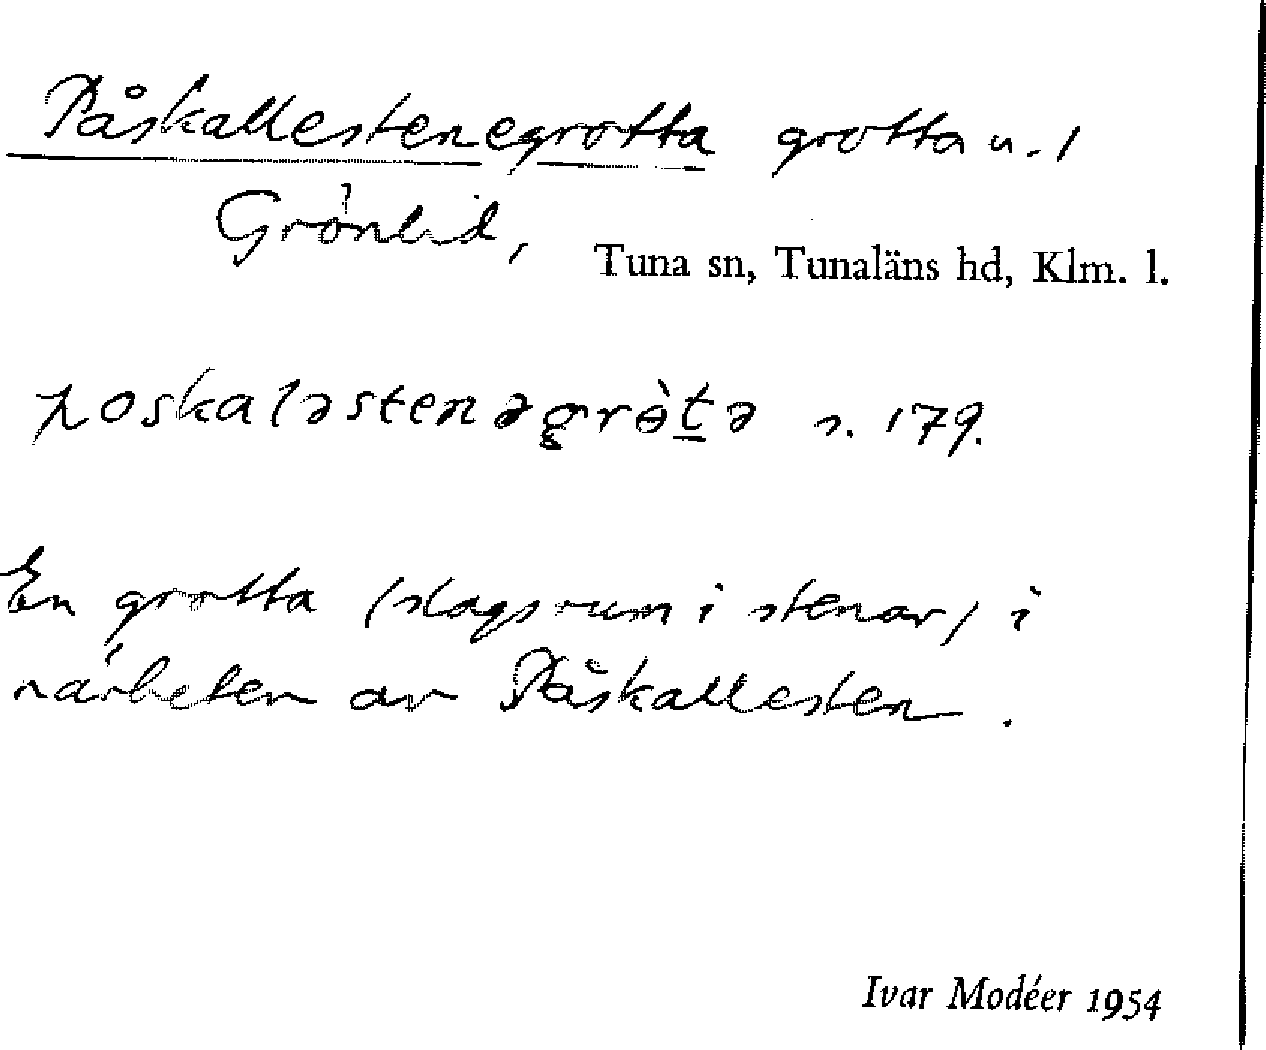 Påskallestenegrotta grotta u. /
Grönlid,
Tuna sn, Tunaläns hd, Klm. l.
poskaləstenəgrὸtə s. 179.
En grotta (slagsrum i stenar) i
närheten av Påskallesten.
Ivar Modéer 1954